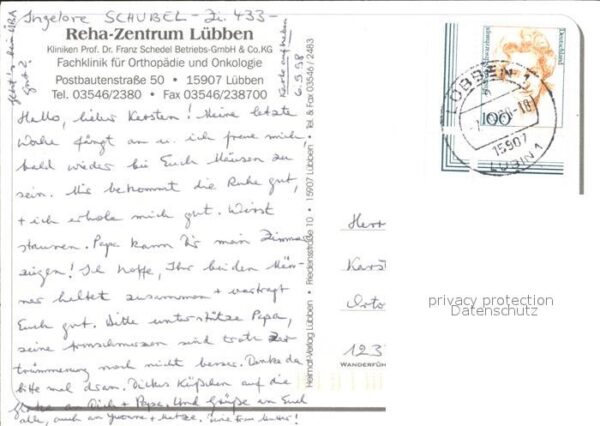 Ingelore SCHUBEL - Zi. 433 -
Reha-Zentrum Lübben
Kliniken Prof. Dr. Franz Schedel Betriebs-GmbH & Co.KG
Fachklinik für Orthopädie und Onkologie
Postbautenstraße 50 • 15907 Lübben
Tel. 03546/2380 • Fax 03546/238700
Hallo, lieber Karsten! Meine letzte
Woche fängt an u. ich freue mich,
bald wieder bei Euch Mäusen zu
sein. Mir bekommt die Ruhe gut,
+ ich erhole mich gut. Wirst
staunen. Papa kann Dir mein Zimmer
zeigen! Ich hoffe, Ihr beiden Män-
ner haltet zusammen + vertragt
Euch gut. Bitte unterstütze Papa,
seine Armschmerzen sind trotz Zer-
trümmerung noch nicht besser. Denke da
bitte mal dran. Dickes Küßchen auf die
an Dich + Papa. Und Grüße an Euch
alle, auch an Yvonne +
Karte aufheben
6.9.98
Heimat-Verlag Lübben • Friedensstraße 10 • 15907 Lübben • Tel. & Fax 03546 / 2483
Deutschland
100
LÜBBEN 1
15907
LUBIN 1
Herr
Karst
Orto
123
WANDERFÜH
privacy protection
Datenschutz